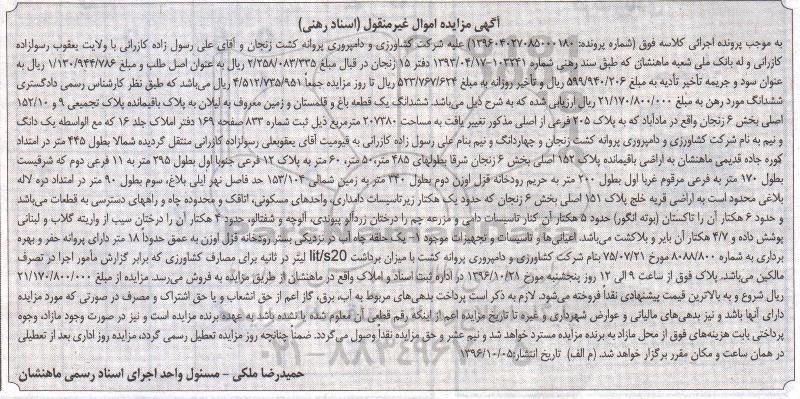 آگهی مزایده اموال غیرمنقول (اسناد رهنی)
به موجب پرونده اجرائی کلاسه فوق (شماره پرونده: ۱۳۹۶۰۴۰۲۷۰۸۵۰۰۰۱۸۰) علیه شرکت کشاورزی و دامپروری پروانه کشت زنجان و آقای علی رسول زاده کازرانی با ولایت یعقوب رسولزاده
کازرانی و له بانک ملی شعبه ماهنشان که طبق سند رهنی شماره ۱۰۳۲۴۱-۱۳۹۳/۰۴/۱۷ دفتر ۱۵ زنجان در قبال مبلغ ۲/۲۵۸/۰۸۳/۳۳۵ ریال به عنوان اصل طلب و مبلغ ۱/۱۳۰/۹۴۴/۷۸۶ ریال به
عنوان سود و جریمه تأخیر تأدیه به مبلغ ۵۹۹/۹۴۰/۲۰۶ ریال و تأخیر روزانه به مبلغ ۵۲۳/۷۶۷/۶۲۴ ریال تا روز مزایده جمعاً ۴/۵۱۲/۷۳۵/۹۵۱ ریال می‌باشد که طبق نظر کارشناس رسمی دادگستری
ششدانگ مورد رهن به مبلغ ۲۱/۱۷۰/۸۰۰/۰۰۰ ریال ارزیابی شده که به شرح ذیل می‌باشد. ششدانگ یک قطعه باغ و قلمستان و زمین معروف به لیلان به پلاک باقیمانده پلاک تجمیعی ۹ و ۱۵۲/۱۰
اصلی بخش ۶ زنجان واقع در مادآباد که به پلاک ۲۰۵ فرعی از اصلی مذکور تغییر یافت به مساحت ۲۰۷۳۸۰ مترمربع ذیل ثبت شماره ۸۳۳ صفحه ۱۶۹ دفتر املاک جلد ۱۶ که مع الواسطه یک دانگ
و نیم به نام شرکت کشاورزی و دامپروری پروانه کشت زنجان و چهاردانگ و نیم بنام علی رسول زاده کازرانی به قیومیت آقای یعقوبعلی رسولزاده کازرانی منتقل گردیده شمالا بطول ۴۴۵ متر در امتداد
کوره جاده قدیمی ماهنشان به اراضی باقیمانده پلاک ۱۵۲ اصلی بخش ۶ زنجان شرقا بطولهای ۴۸۵ متر، ۵۰ متر، ۶۰ متر به پلاک ۱۲ فرعی جنوبا اول بطول ۲۹۵ متر به ۱۱ فرعی دوم که شرقیست
بطول ۱۷۰ متر به فرعی مرقوم غربا اول بطول ۲۰۰ متر به حریم رودخانه قزل اوزن دوم بطول ۳۴۰ متر به زمین شمالی ۱۵۳/۱۰۴ حد فاصل نهر ایلی بلاغ، سوم بطول ۹۰ متر در امتداد دره لاله
بلاغی محدود است به اراضی قریه خلج پلاک ۱۵۱ اصلی بخش ۶ زنجان که حدود یک هکتار زیرتاسیسات دامداری، واحدهای مسکونی، اتاقک و محدوده چاه و راههای دسترسی به قطعات می‌باشد
و حدود ۶ هکتار آن را تاکستان (بوته انگور) حدود ۵ هکتار آن کنار تاسیسات دامی و مزرعه چم را درختان زردآلو پیوندی، آلوچه و شفتالو، حدود ۴ هکتار آن را درختان سیب از واریته گلاب و لبنانی
پوشش داده و ۴/۷ هکتار آن بایر و بلاکشت می‌باشد. اعیانی‌ها و تاسیسات و تجهیزات موجود ۱- یک حلقه چاه آب در نزدیکی بستر روئخانه قزل اوزن به عمق حدوداً ۱۸ متر دارای پروانه حفر و بهره
برداری به شماره ۸۰۸۸/۸۰۰ مورخ ۷۵/۰۷/۲۱ بنام شرکت کشاورزی و دامپروری پروانه کشت با میزان برداشت lit/s20 لیتر در ثانیه برای مصارف کشاورزی که برابر گزارش مأمور اجرا در تصرف
مالکین می‌باشد. پلاک فوق از ساعت ۹ الی ۱۲ روز پنجشنبه مورخ ۱۳۹۶/۱۰/۲۱ در اداره ثبت اسناد و املاک واقع در ماهنشان از طریق مزایده به فروش می‌رسد. مزایده از مبلغ ۲۱/۱۷۰/۸۰۰/۰۰۰
ریال شروع و به بالاترین قیمت پیشنهادی نقداً فروخته می‌شود. لازم به ذکر است پرداخت بدهی‌های مربوط به آب، برق، گاز اعم از حق انشعاب و یا حق اشتراک و مصرف در صورتی که مورد مزایده
دارای آنها باشد و نیز بدهی‌های مالیاتی و عوارض شهرداری و غیره تا تاریخ مزایده اعم از اینکه رقم قطعی آن معلوم شده یا نشده باشد به عهده برنده مزایده است و نیز در صورت وجود مازاد، وجوه
پرداختی بابت هزینه‌های فوق از محل مازاد به برنده مزایده مسترد خواهد شد و نیم عشر و حق مزایده نقداً وصول می‌گردد. ضمناً چنانچه روز مزایده تعطیل رسمی گردد، مزایده روز اداری بعد از تعطیلی
در همان ساعت و مکان مقرر برگزار خواهد شد. (م الف) تاریخ انتشار: ۱۳۹۶/۱۰/۰۵
حمیدرضا ملکی - مسئول واحد اجرای اسناد رسمی ماهنشان